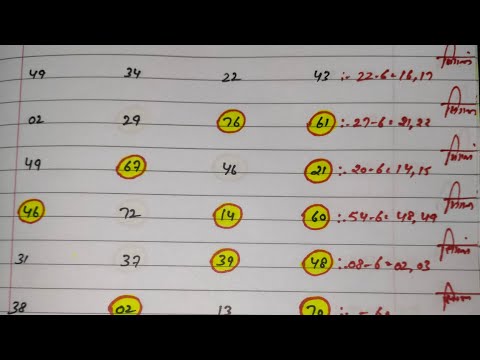 49 34 22 43 :- 22-6=16,17
02 29 76 61 :- 27-6=21,22
49 67 46 21 :- 20-6=14,15
46 72 14 60 :- 54-6=48,49
31 37 39 48 :- 08-6=02,03
38 02 13